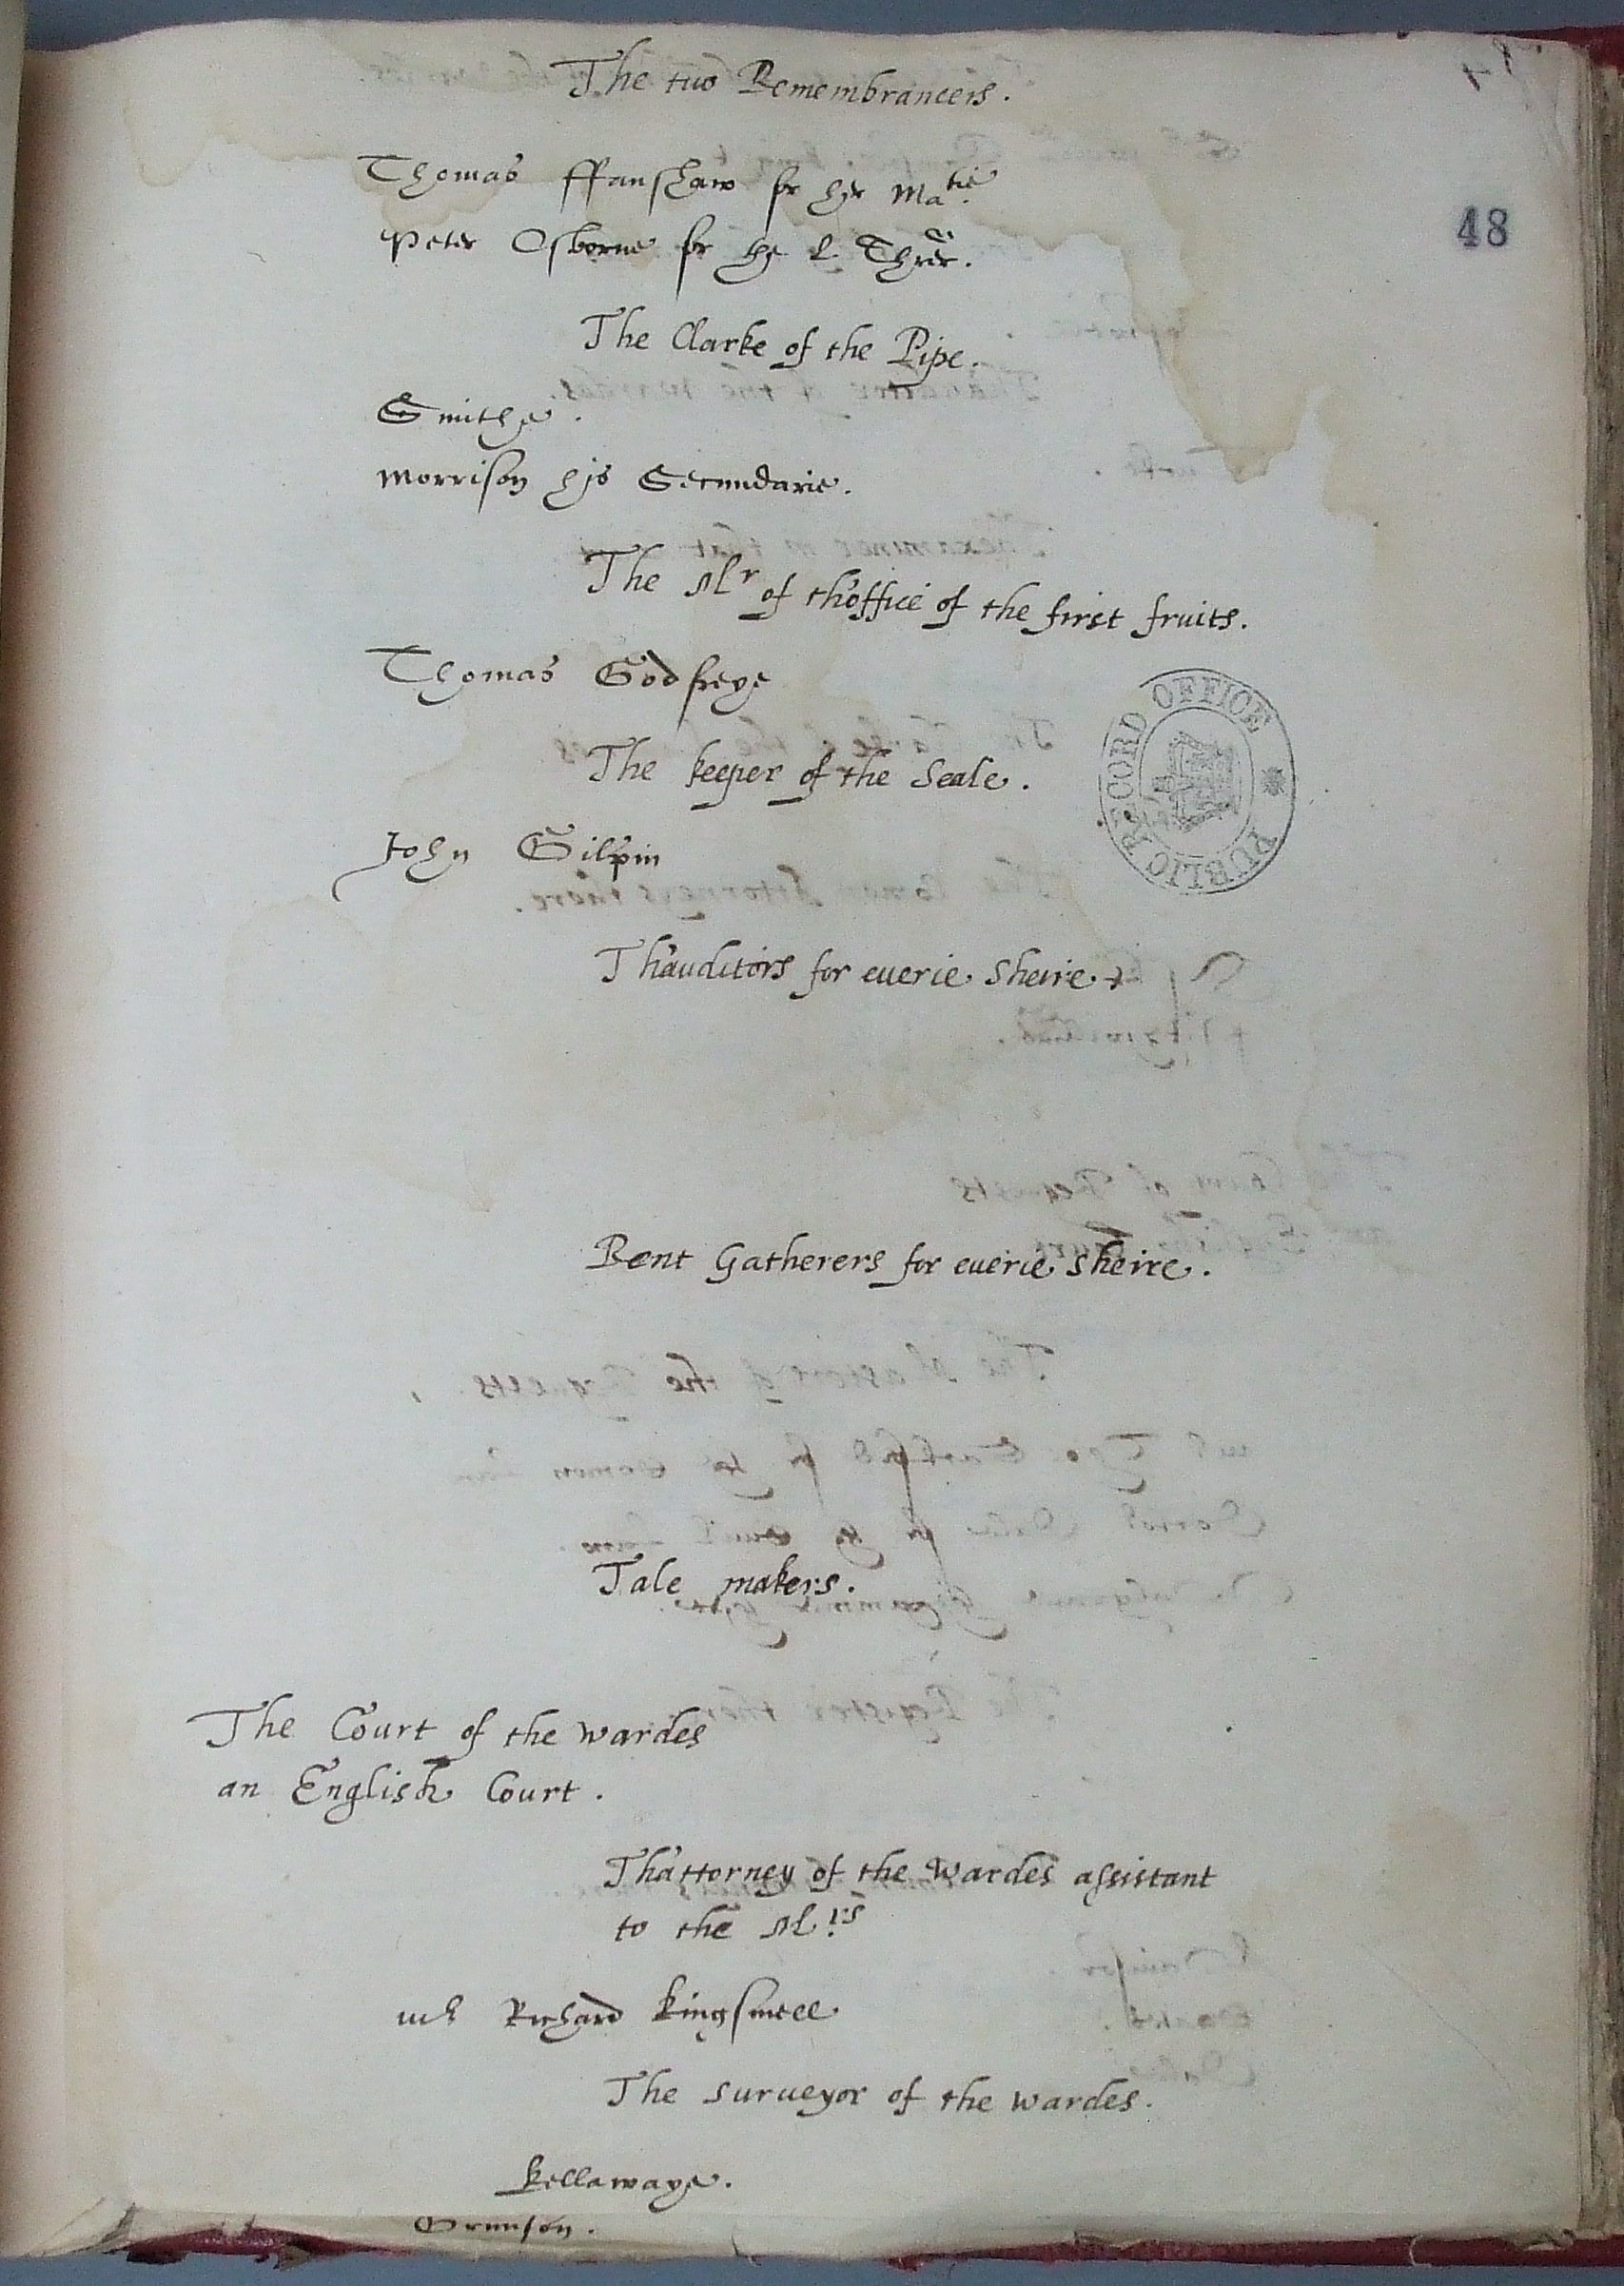 The two Remembrancers.
48
Thomas ffanshaw for her Matie.
Peter Osborne for the L. Threr.
The Clarke of the Pipe.
Smithe.
Morrison his Secundarie.
The Mr of thoffice of the first fruits.
Thomas Godfreye
The keeper of the Seale.
PUBLIC RECORD OFFICE
John Gilpin
Thauditors for euerie sheire.
Rent Gatherers for euerie sheire.
Tale makers.
The Court of the wardes
an English Court.
Thattorney of the wardes assistant
to the Mrs
Mr Richard Kingsmell
The surueyor of the wardes.
Kellawaye.